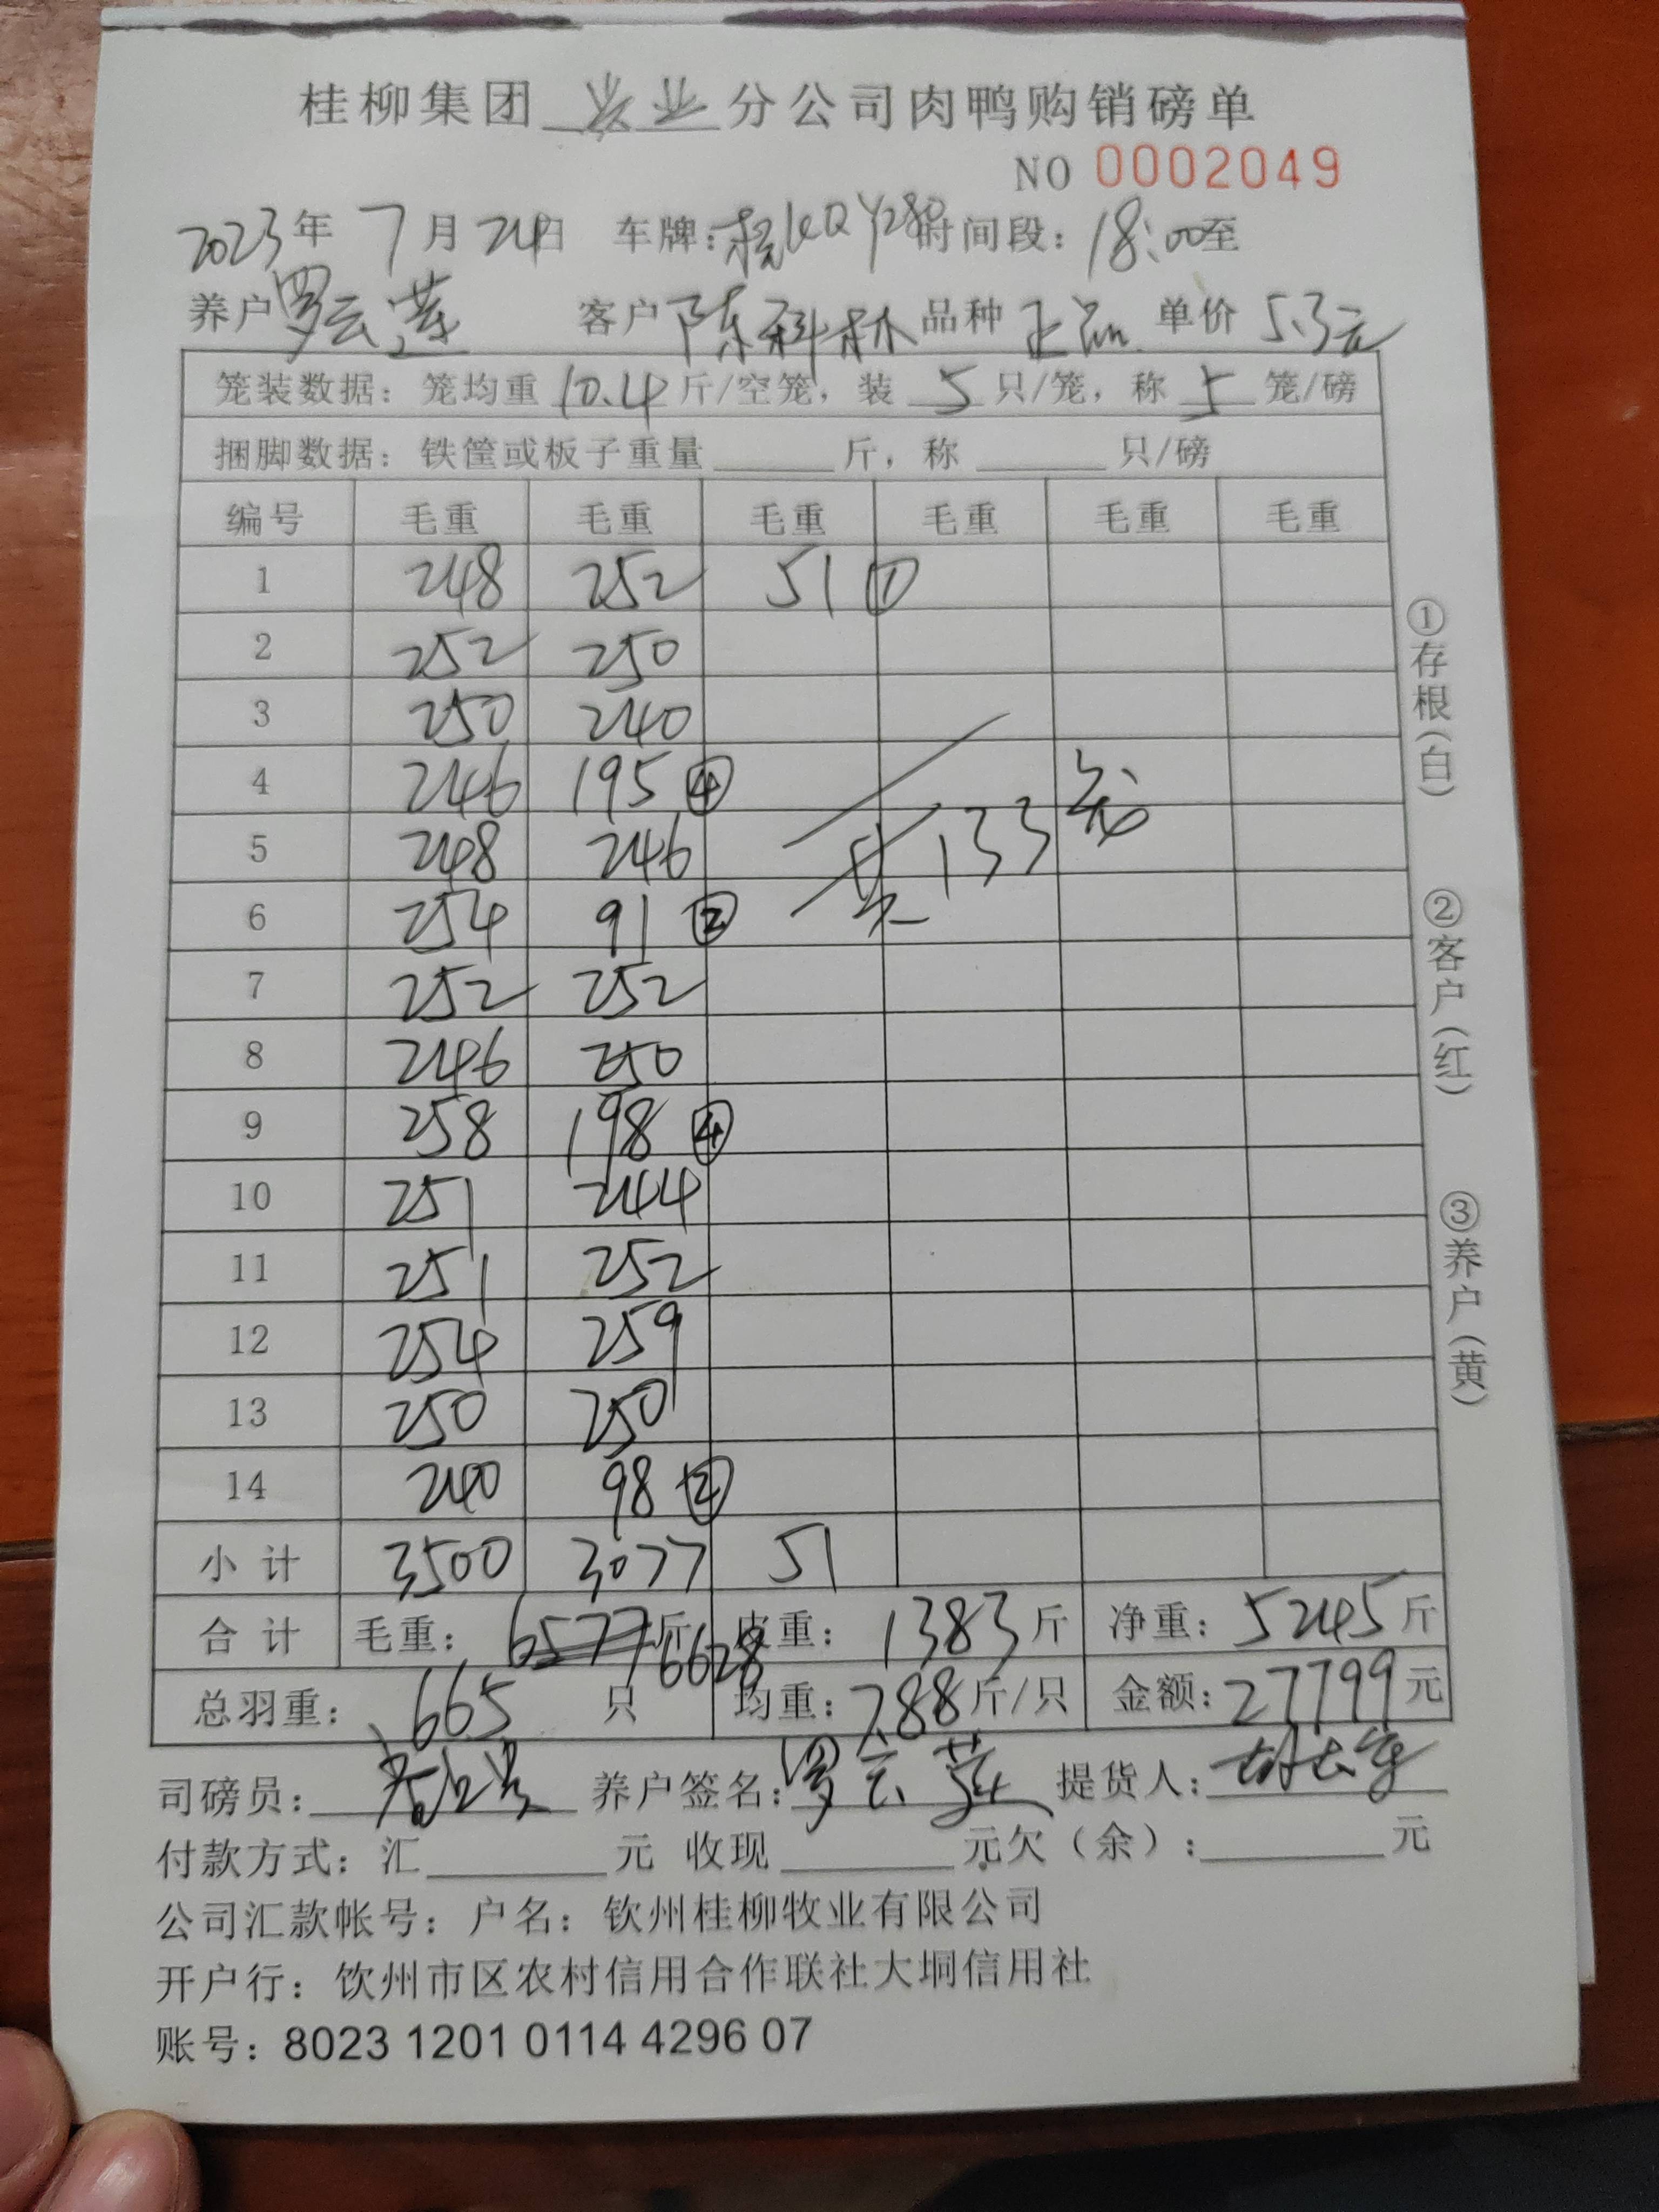 桂柳集团 分公司肉鸭购销磅单
NO 0002049
2023年 7月 24日 车牌: 时间段: 18:00至
养户 罗云莲 客户 陈科林 品种 正品 单价 5.3元
笼装数据: 笼均重 10.4 斤/空笼, 装 5 只/笼, 称 5 笼/磅
捆脚数据: 铁筐或板子重量 斤, 称 只/磅
编号 毛重 毛重 毛重 毛重 毛重 毛重
1 248 252 51 ①
2 252 250
3 250 240
4 246 195 ④
5 248 246 共133笼
6 254 91 ②
7 252 252
8 246 250
9 258 198 ④
10 251 244
11 251 252
12 254 259
13 250 250
14 240 98 ②
小计 3500 3077 51
合计 毛重: 6577斤 6628 皮重: 1383斤 净重: 5245斤
总羽重: 665 只 均重: 7.88斤/只 金额: 27799元
司磅员: 养户签名: 罗云莲 提货人:
付款方式: 汇 元 收现 元欠(余): 元
公司汇款帐号: 户名: 钦州桂柳牧业有限公司
开户行: 钦州市区农村信用合作联社大垌信用社
账号: 8023 1201 0114 4296 07
①存根(白)
②客户(红)
③养户(黄)